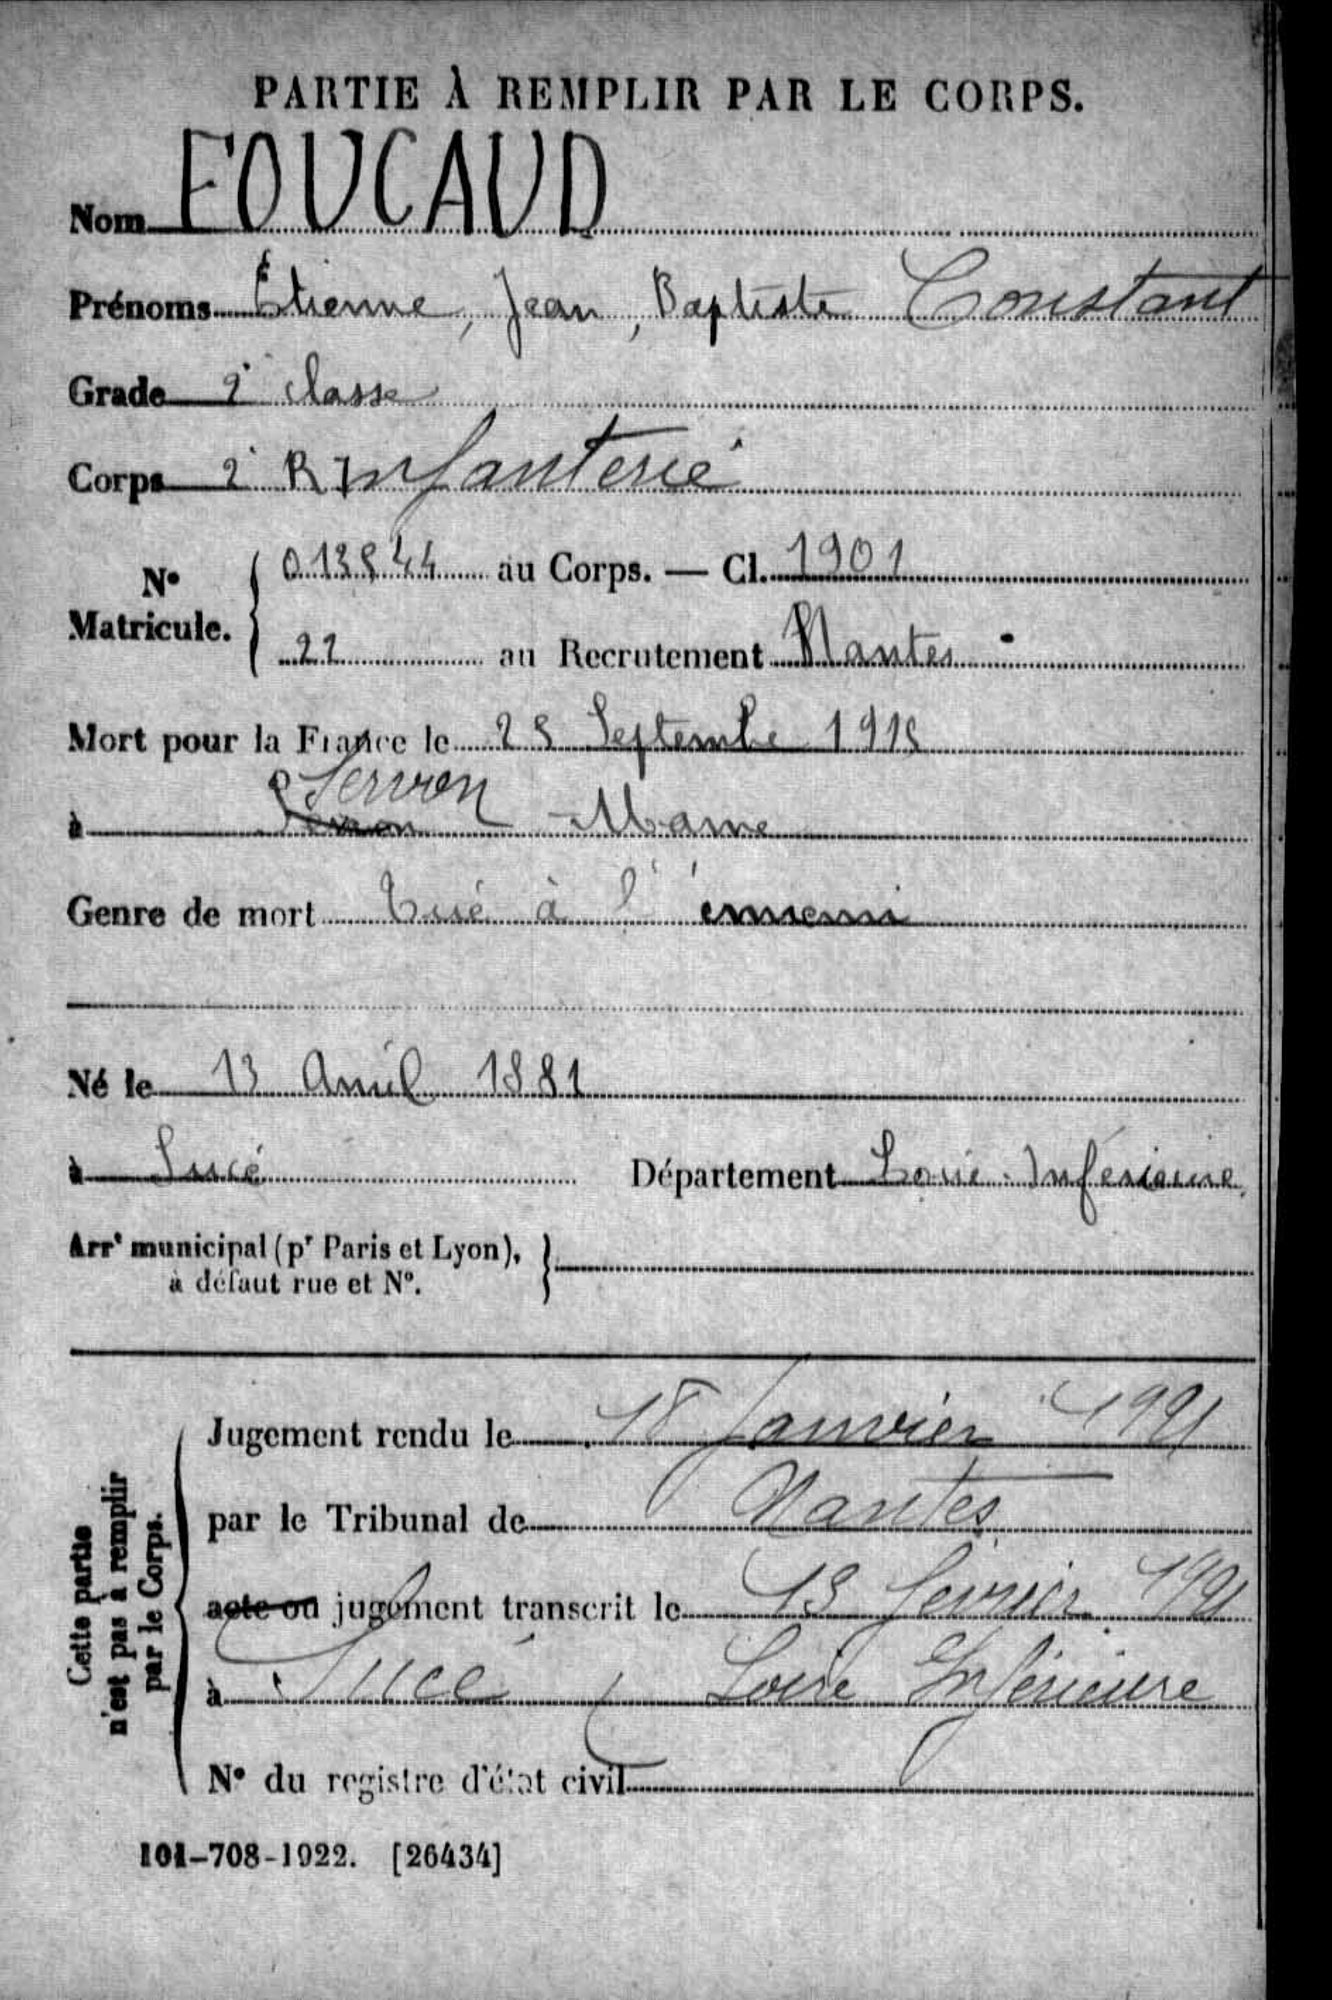 PARTIE À REMPLIR PAR LE CORPS.
Nom FOUCAUD
Prénoms Étienne, Jean, Baptiste Constant
Grade 2e classe
Corps 2e R Infanterie
No Matricule. { 013544 au Corps. — Cl. 1901
22 au Recrutement Nantes
Mort pour la France le 25 Septembre 1915
à Servon - Marne
Genre de mort Tué à l'ennemi
Né le 13 Avril 1881
à Sucé Département Loire-Inférieure
Arrt municipal (pr Paris et Lyon), à défaut rue et No.
Cette partie n'est pas à remplir par le Corps.
Jugement rendu le 18 Janvier 1921
par le Tribunal de Nantes
acte ou jugement transcrit le 13 février 1921
à Sucé, Loire Inférieure
No du registre d'état civil
101-708-1922. [26434]